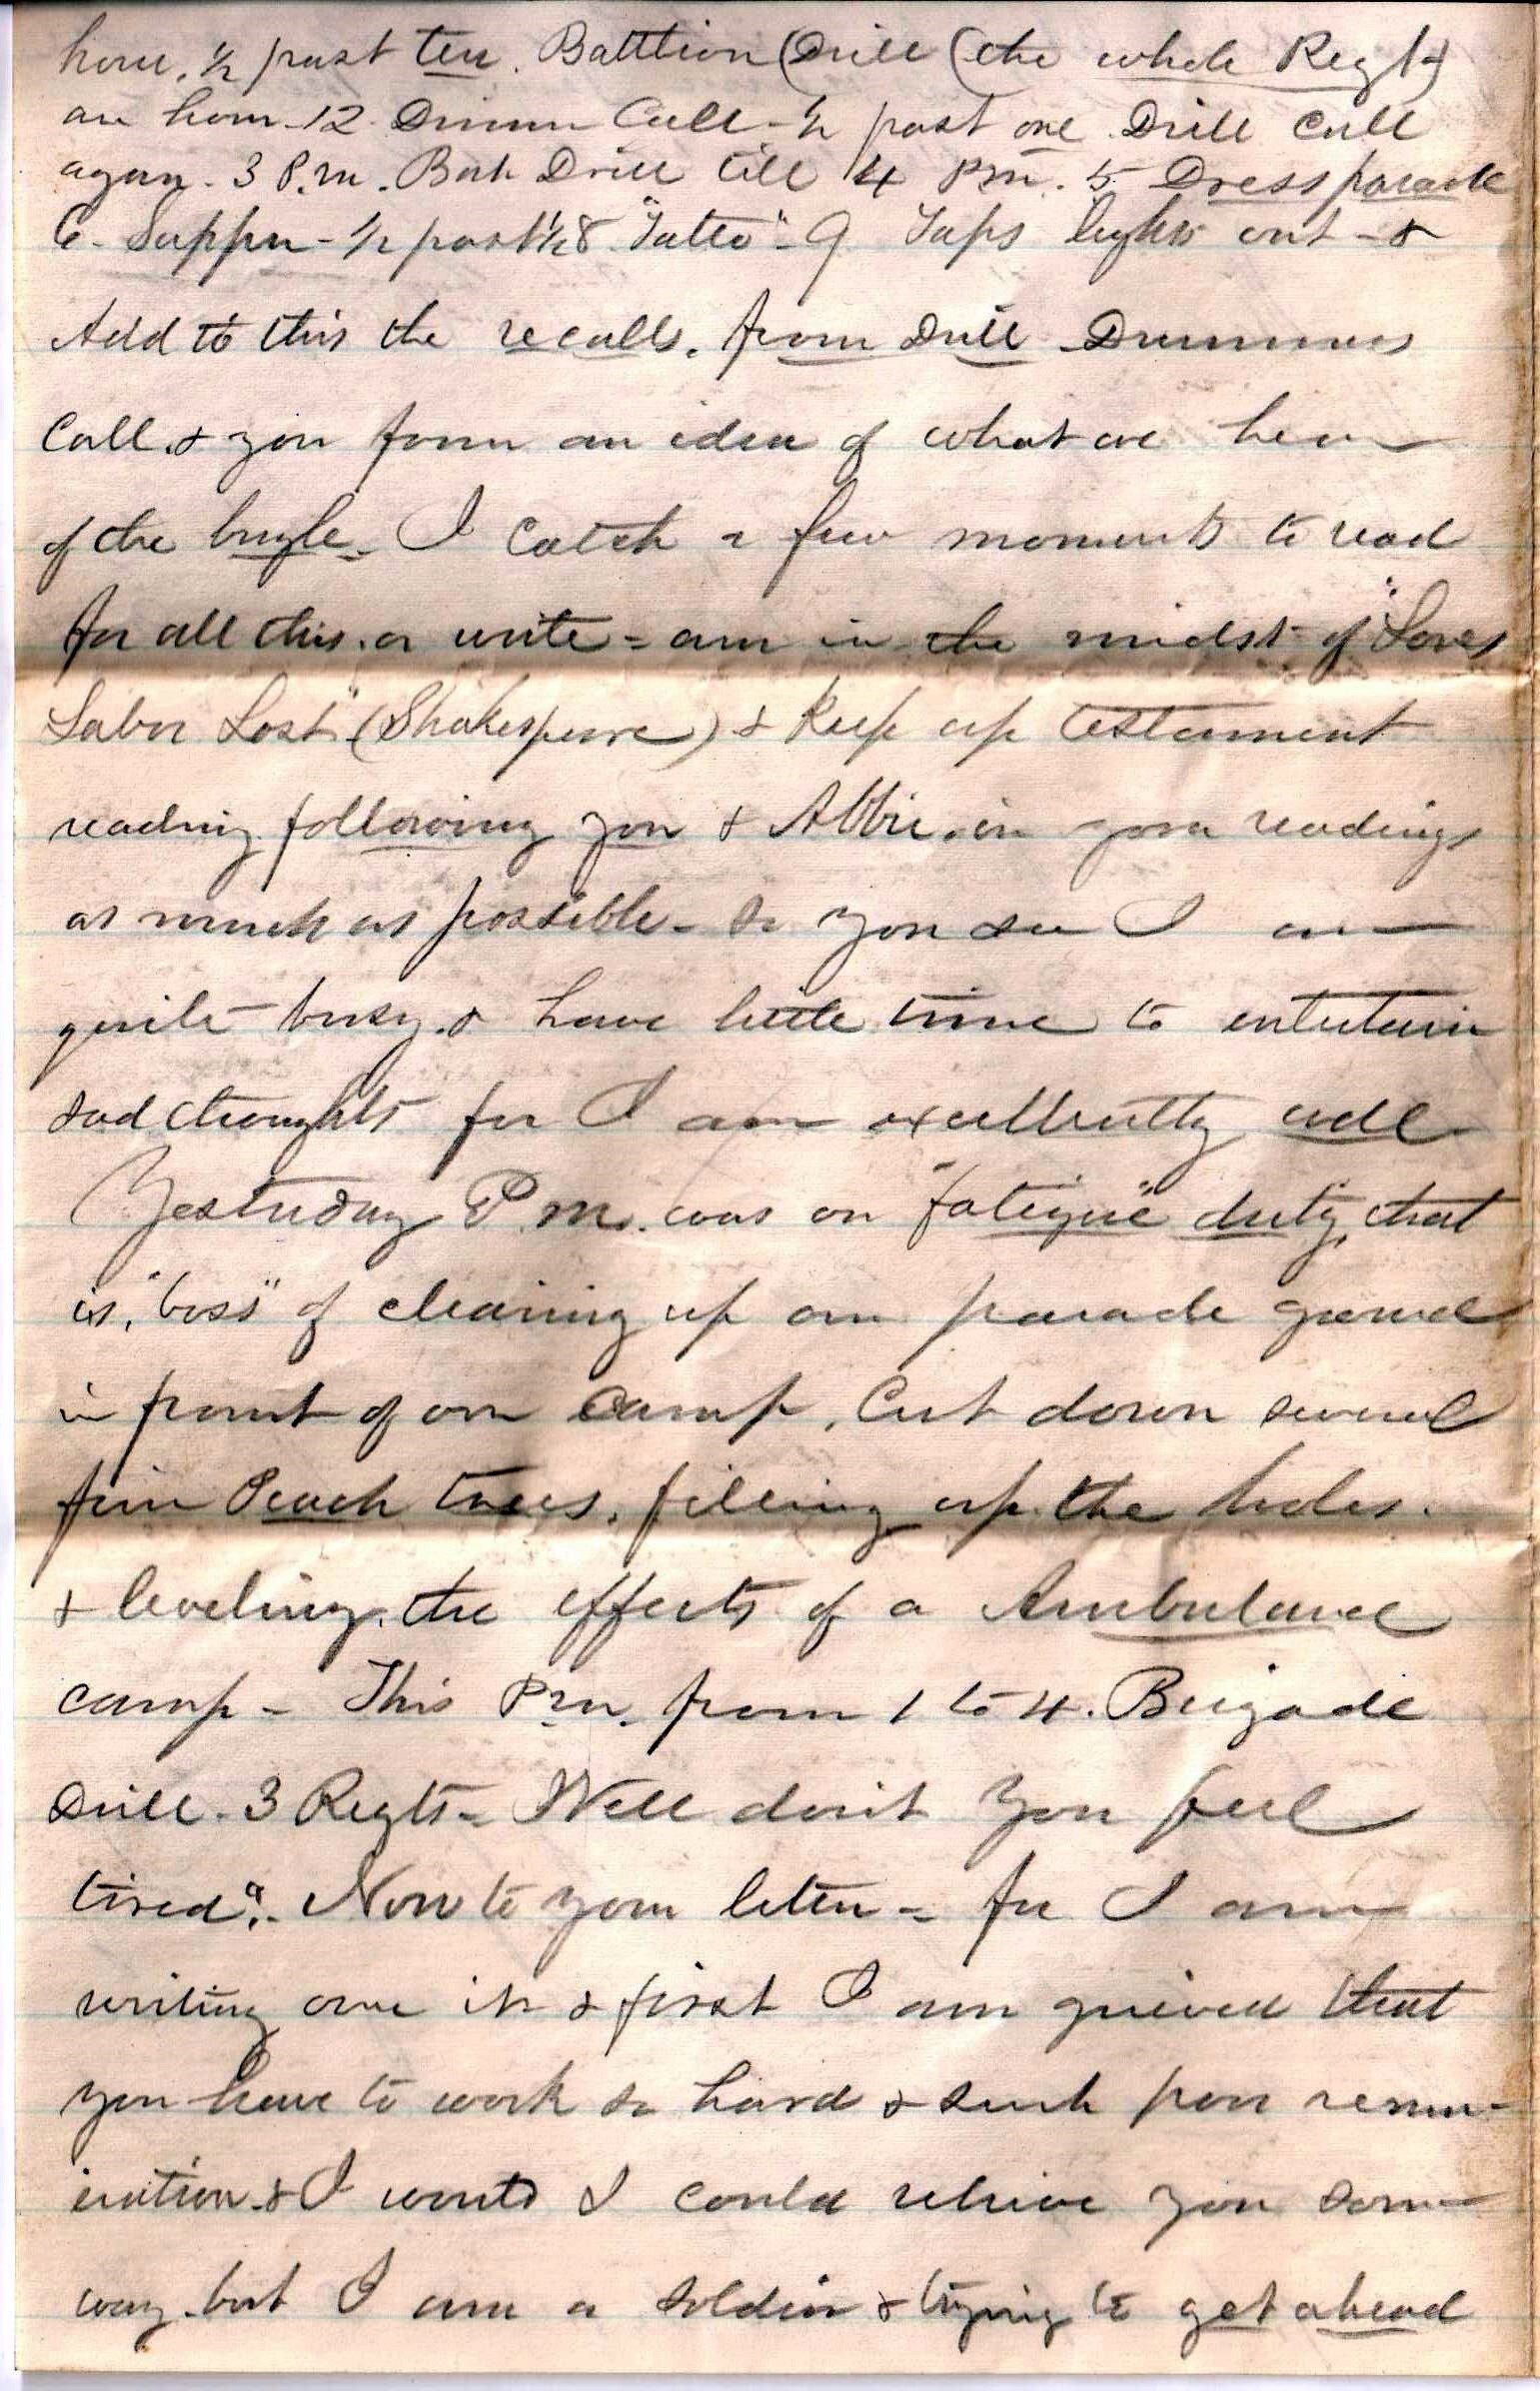 hour, ½ past ten. Battlion Drill (the whole Regt)
an hour - 12 Dinner Call - ½ past one Drill Call
again - 3 P.m. Bat Drill till 4 Pm. 5 Dress parade
6 - Supper - ½ past 8 "Tatto" - 9 Taps lights out - &
Add to this the recalls. from Drill Drummers
Call. & you form an idea of what we hear
of the bugle - I catch a few moments to read
for all this. or write = am in the midst of "Loves
Labor Lost" (Shakespeare) & keep up testament
reading following you & Abbie. in your readings
as much as possible - So you see I am
quite busy. & have little time to entertain
sad thoughts for I am excellently well
Yesterday P.m. was on "fatigue" duty, that
is, "boss" of clearing up our parade ground
in front of our camp. Cut down several
fine Peach trees, filling up the holes.
& leveling, the effects of a Ambulance
camp - This Pm. from 1 to 4. Brigade
Drill - 3 Regts = Well don't you feel
tired". Now to your letter = for I am
writing one in & first I am grieved that
you have to work so hard & such poor remun-
eration & I would I could relieve you some
way. but I am a soldier & trying to get ahead